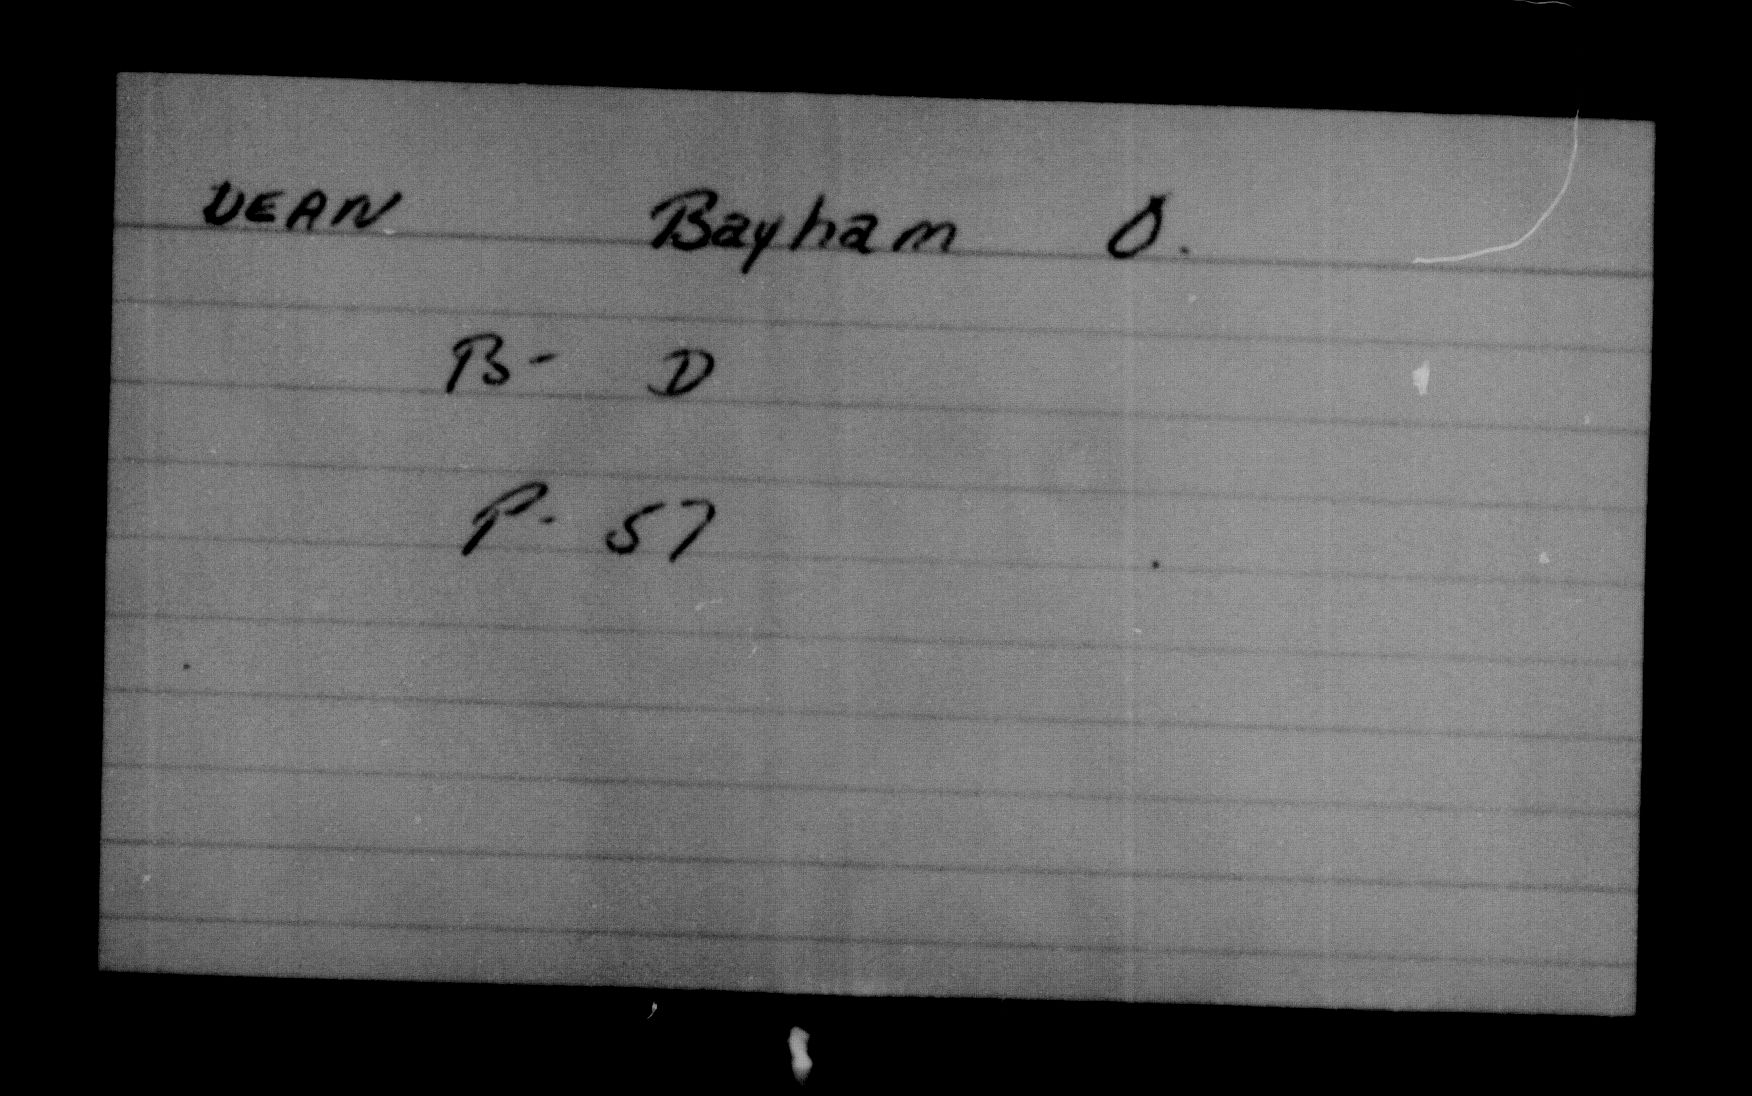 DEAN Bayham O.
B- D
P- 57